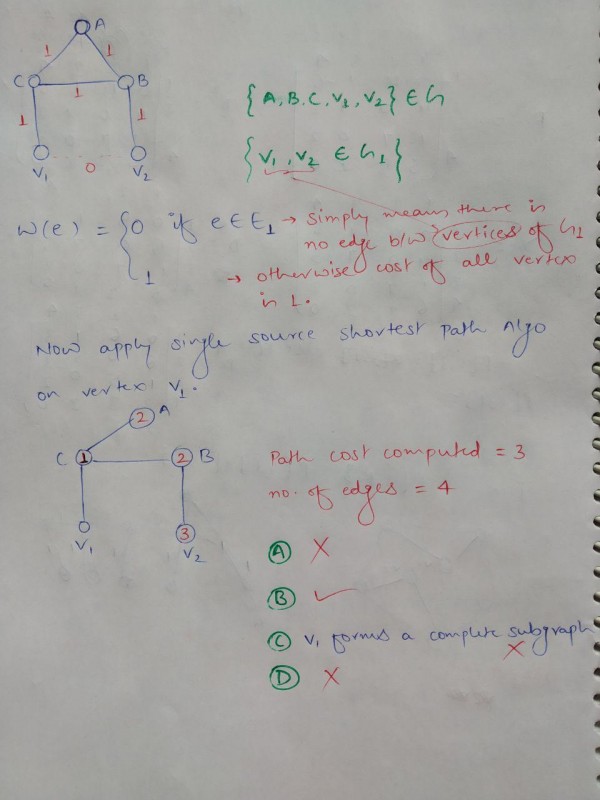 A
1 1
C 1 B
1 1
V₁ 0 V₂
{A, B, C, V₁, V₂} ∈ G
{V₁, V₂ ∈ G₁}
W(e) = {0 if e ∈ E₁ → simply means there is
no edge b/w vertices of G₁
1 → otherwise cost of all vertex
is 1.
Now apply single source shortest path Algo
on vertex V₁.
2 A
C 1 2 B
V₁ 3
V₂
Path cost computed = 3
no. of edges = 4
A ✗
B ✓
C V₁ forms a complete subgraph
✗
D ✗